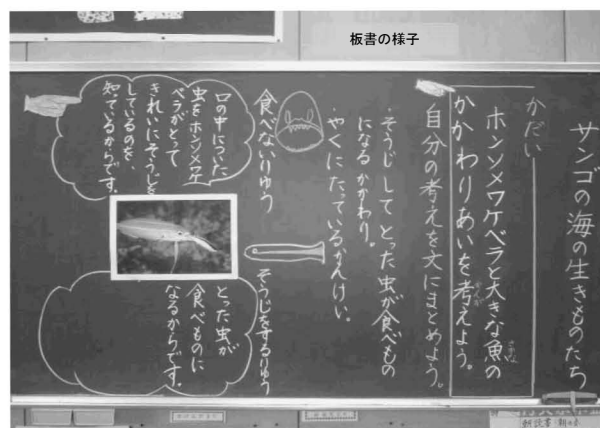 板書の様子
サンゴの海の生きものたち
かだい
ホンソメワケベラと大きな魚の
さかな
かかわりあいを考えよう。
かんが
自分の考えを文にまとめよう。
・そうじしてとった虫が食べもの
になるかかわり。
・やくにたっているかんけい。
食べないりゆう
口の中についた
虫をホンソメワケ
ベラがとって
きれいにそうじを
しているのを、
知っているからです。
そうじをするりゆう
とった虫が
食べものに
なるからです。